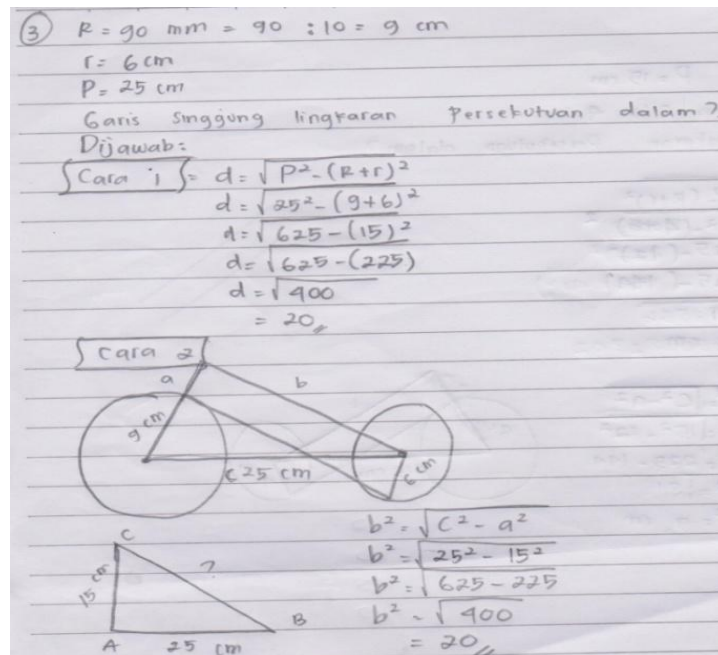 ③ R = 90 mm = 90 : 10 = 9 cm
r = 6 cm
P = 25 cm
Garis singgung lingkaran persekutuan dalam?
Dijawab:
Cara 1 = d = √P² - (R+r)²
d = √25² - (9+6)²
d = √625 - (15)²
d = √625 - (225)
d = √400
= 20
Cara 2
a
b
9 cm
c 25 cm
6 cm
b² = √c² - a²
C
b² = √25² - 15²
15 cm
?
b² = √625 - 225
b² = √400
A 25 cm B
= 20